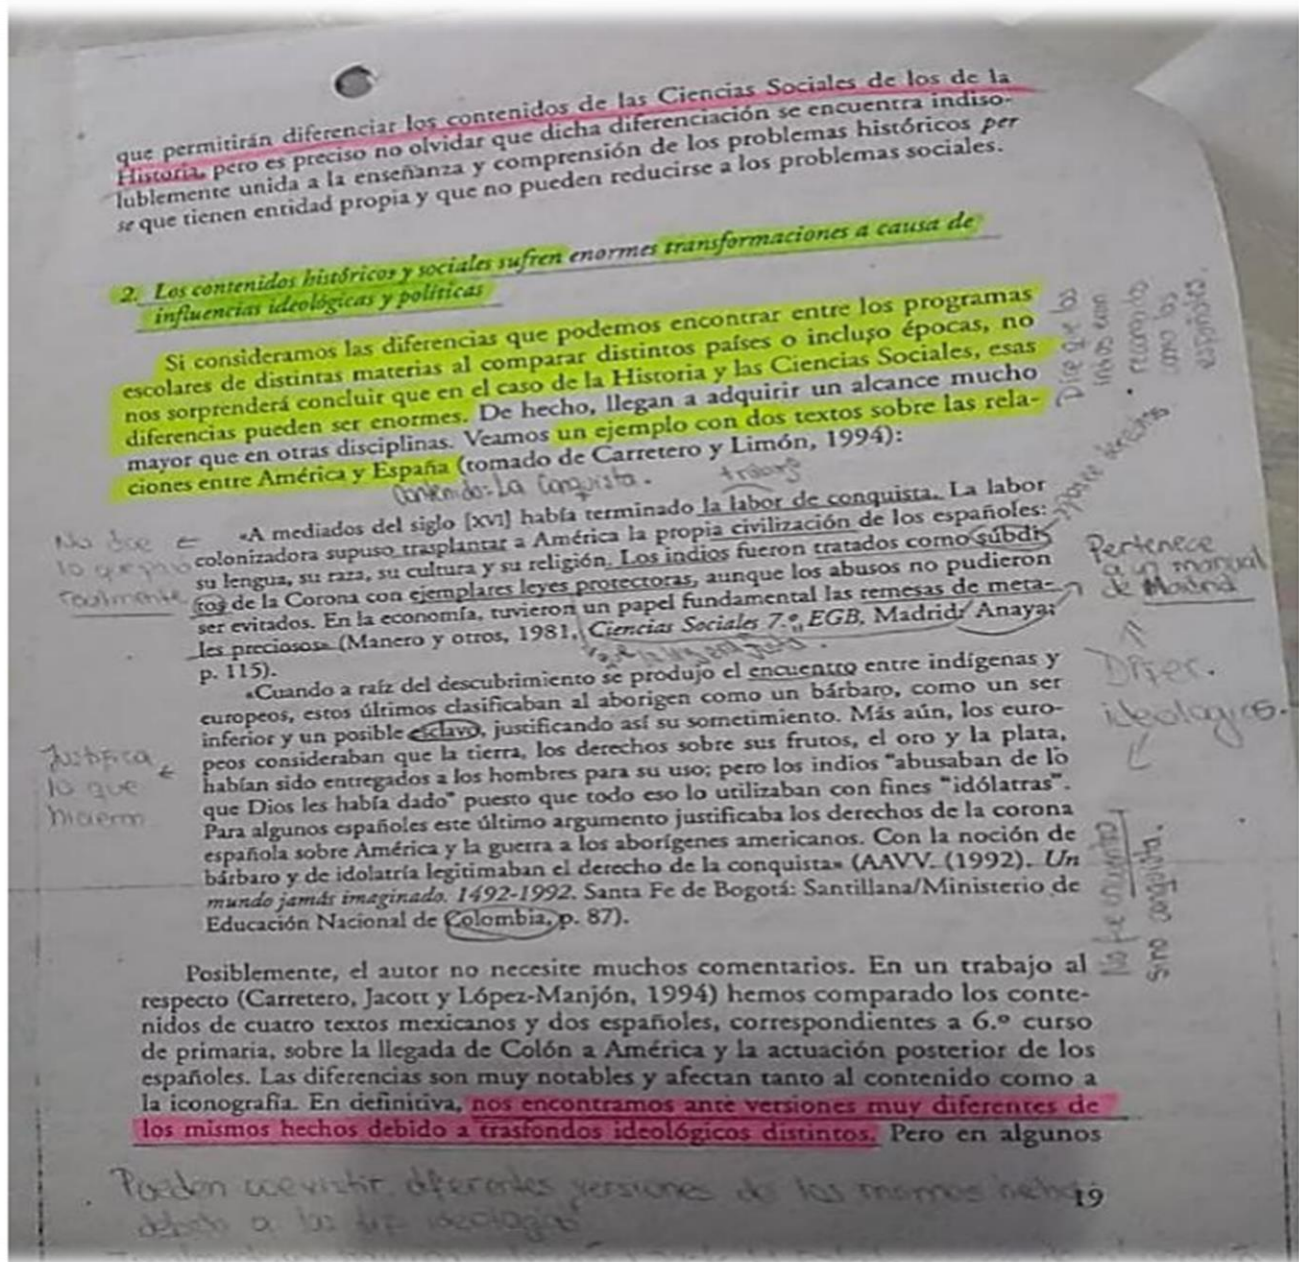 que permitirán diferenciar los contenidos de las Ciencias Sociales de los de la
Historia, pero es preciso no olvidar que dicha diferenciación se encuentra indiso-
lublemente unida a la enseñanza y comprensión de los problemas históricos per
se que tienen entidad propia y que no pueden reducirse a los problemas sociales.
2. Los contenidos históricos y sociales sufren enormes transformaciones a causa de
influencias ideológicas y políticas
Si consideramos las diferencias que podemos encontrar entre los programas
escolares de distintas materias al comparar distintos países o incluso épocas, no
nos sorprenderá concluir que en el caso de la Historia y las Ciencias Sociales, esas
diferencias pueden ser enormes. De hecho, llegan a adquirir un alcance mucho
mayor que en otras disciplinas. Veamos un ejemplo con dos textos sobre las rela-
ciones entre América y España (tomado de Carretero y Limón, 1994):
Dice que los
indios eran
reconocidos
como los
españoles.
Contenido: La Conquista.
trabajo
«A mediados del siglo [XVI] había terminado la labor de conquista. La labor
colonizadora supuso trasplantar a América la propia civilización de los españoles:
su lengua, su raza, su cultura y su religión. Los indios fueron tratados como súbdi-
tos de la Corona con ejemplares leyes protectoras, aunque los abusos no pudieron
ser evitados. En la economía, tuvieron un papel fundamental las remesas de meta-
les preciosos» (Manero y otros, 1981, Ciencias Sociales 7.º, EGB, Madrid: Anaya;
p. 115).
No dice
lo que pasó
realmente
derechos.
Pertenece
a un manual
de Madrid
«Cuando a raíz del descubrimiento se produjo el encuentro entre indígenas y
europeos, estos últimos clasificaban al aborigen como un bárbaro, como un ser
inferior y un posible esclavo, justificando así su sometimiento. Más aún, los euro-
peos consideraban que la tierra, los derechos sobre sus frutos, el oro y la plata,
habían sido entregados a los hombres para su uso; pero los indios "abusaban de lo
que Dios les había dado" puesto que todo eso lo utilizaban con fines "idólatras".
Para algunos españoles este último argumento justificaba los derechos de la corona
española sobre América y la guerra a los aborígenes americanos. Con la noción de
bárbaro y de idolatría legitimaban el derecho de la conquista» (AAVV. (1992). Un
mundo jamás imaginado. 1492-1992. Santa Fe de Bogotá: Santillana/Ministerio de
Educación Nacional de Colombia, p. 87).
Justifica
lo que
hicieron
Difer.
ideologicas.
No fue encuentro
sino conquista.
Posiblemente, el autor no necesite muchos comentarios. En un trabajo al
respecto (Carretero, Jacott y López-Manjón, 1994) hemos comparado los conte-
nidos de cuatro textos mexicanos y dos españoles, correspondientes a 6.º curso
de primaria, sobre la llegada de Colón a América y la actuación posterior de los
españoles. Las diferencias son muy notables y afectan tanto al contenido como a
la iconografía. En definitiva, nos encontramos ante versiones muy diferentes de
los mismos hechos debido a trasfondos ideológicos distintos. Pero en algunos
Pueden coexistir diferentes versiones de los mismos hechos
debido a las dif ideologias
19